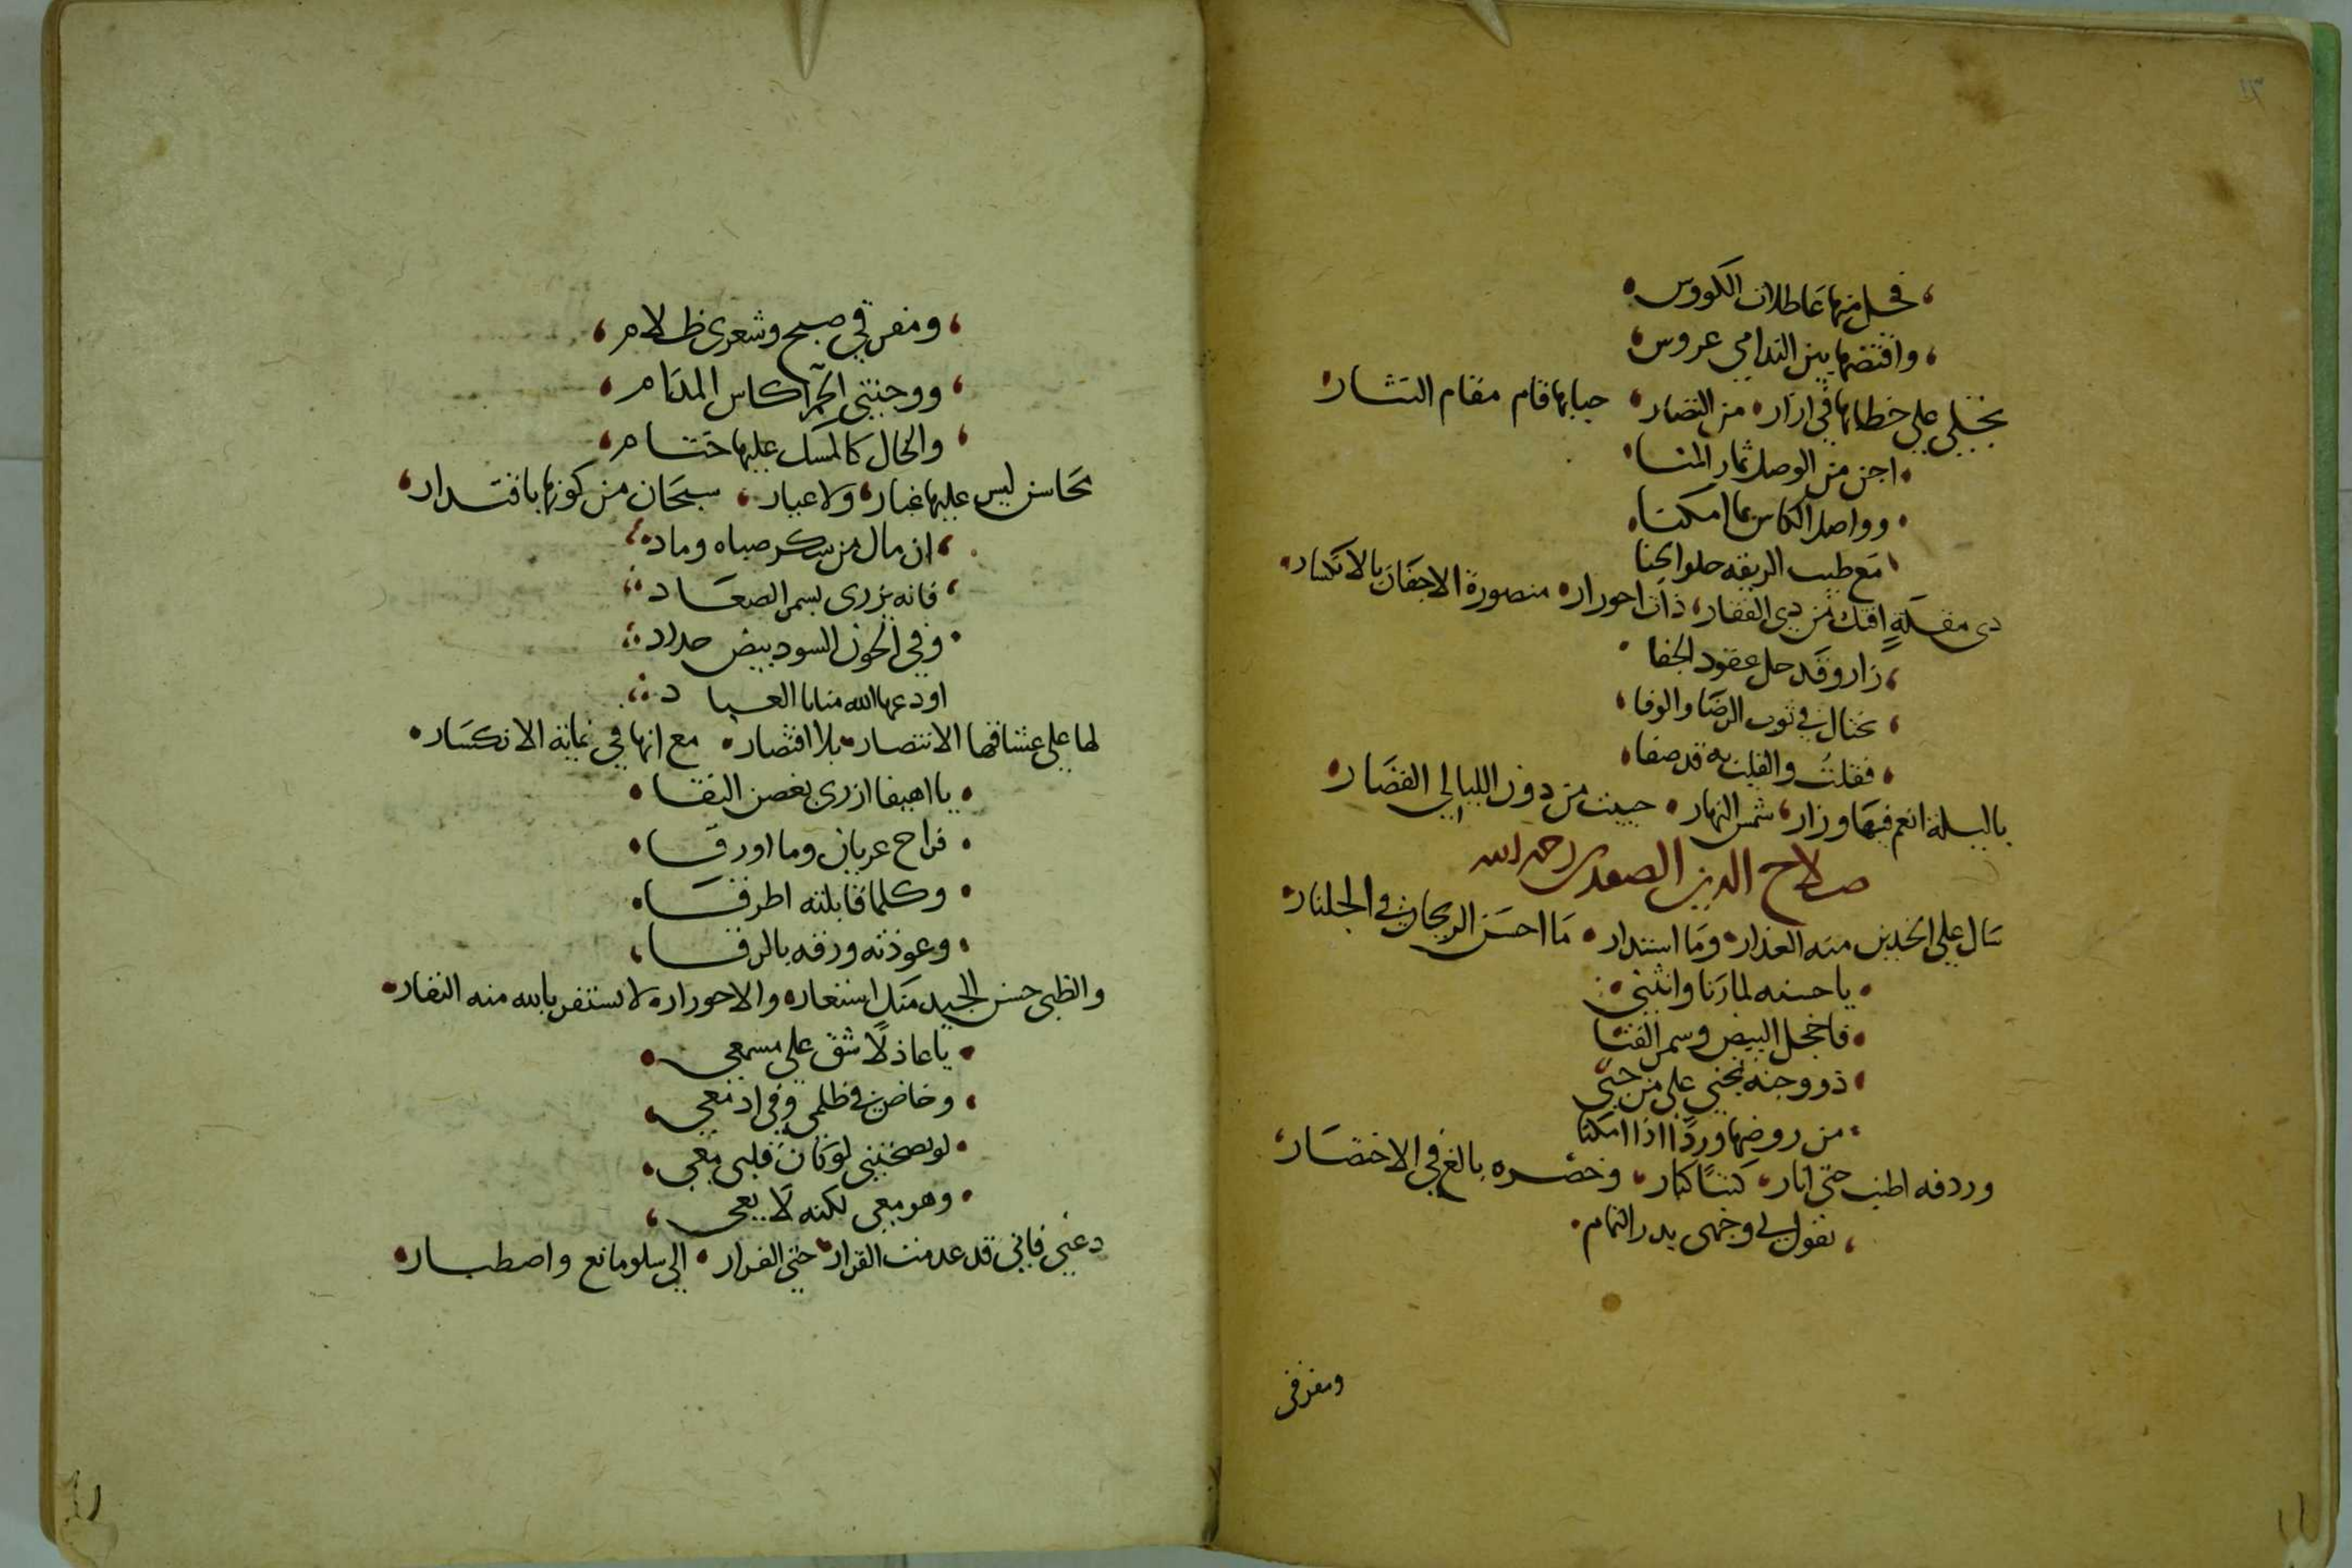 فحل منها عاطلات الكووس
واقتضها بين الندامى عروس
تجتلى على خطابها في ازار من النضار حبابها قام مقام النثار
اجن من الوصل ثمار المنا
وواصل الكاس بما امكنا
مع طيب الريقه حلو الجنا
دى مقلة افتك من دى الفقار ذات احورار منصورة الاجفان بالانكسار
زار وقد حل عقود الجفا
يختال في ثوب الرضا والوفا
فقلت والقلب به قد صفا
ياليلة انعم فيها وزار شمس النهار حييت من دون الليالي القصار
صلاح الدين الصفدى رحمه الله
سال على الخدين منه العذار وما استدار ما احسن الريحان في الجلنار
يا حسنه لما رنا وانثنى
فاخجل البيض وسمر القنا
ذو وجنه تجنى على من جنى
من روضها وردا اذا امكنا
وردفه اطنب حتى انار كثبا كبار وخصره بالغ في الاختصار
تقول لي وجهى بدر التمام
ومفرقى
ومفرقي صبح وشعرى ظلام
ووجنتي الحمرا كاس المدام
والخال كالمسك عليها ختام
محاسن ليس عليها غبار ولا عيار سبحان من كونها باقتدار
ان مال من سكر صباه وماد
فانه يزرى بسمر الصعاد
وفي الجفون السود بيض حداد
اودعها الله منايا العباد
لها على عشاقها الانتصار بلا اقتصار مع انها في غاية الانكسار
يا اهيفا ازرى بغصن النقا
فراح عريان وما اورقا
وكلما قابلته اطرقا
وعوذته ورقه بالرقا
والظبى حسن الجيد منك استعار والاحورار لا تستفر بالله منه النفار
يا عاذلا شق على مسمعى
وخاض في ظلمى وفي ادمعى
لو نصحتنى لو كان قلبى معى
وهو معى لكنه لا يعى
دعنى فانى قد عدمت القرار حتى الفرار الى سلو مانع واصطبار